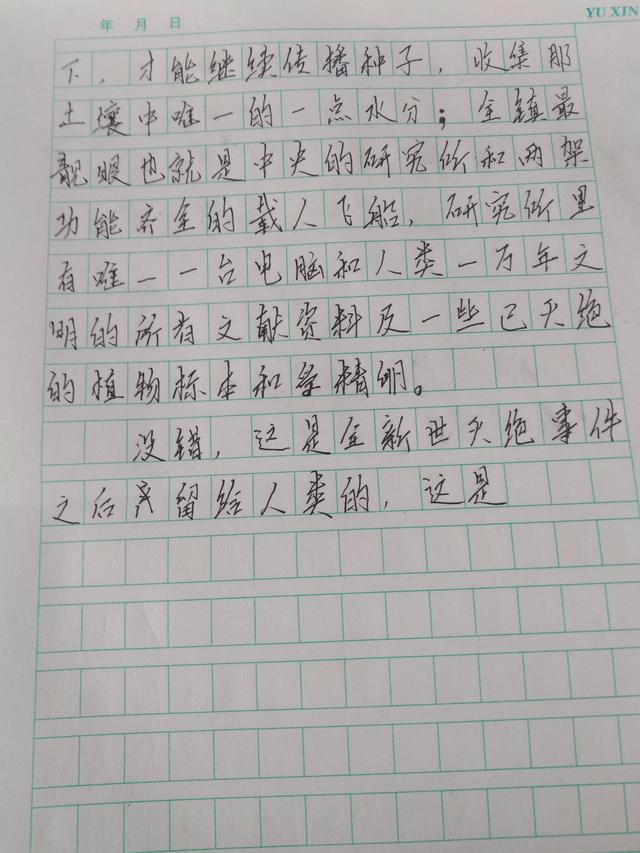 年 月 日 YU XIN
下，才能继续传播种子，收集那
土壤中唯一的一点水分；全镇最
靓眼也就是中央的研究所和两架
功能齐全的载人飞船，研究所里
有唯一一台电脑和人类一万年文
明的所有文献资料及一些已灭绝
的植物标本和学精明。
没错，这是全新世灭绝事件
之后 留给人类的，这是